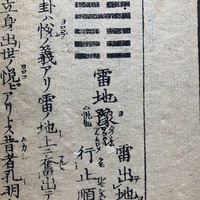 雷出地
行止順
雷地豫
卦ハ悦ノ義アリ雷ノ地上ニ奮出テ
立身出世ノ悦アリトス昔者孔明